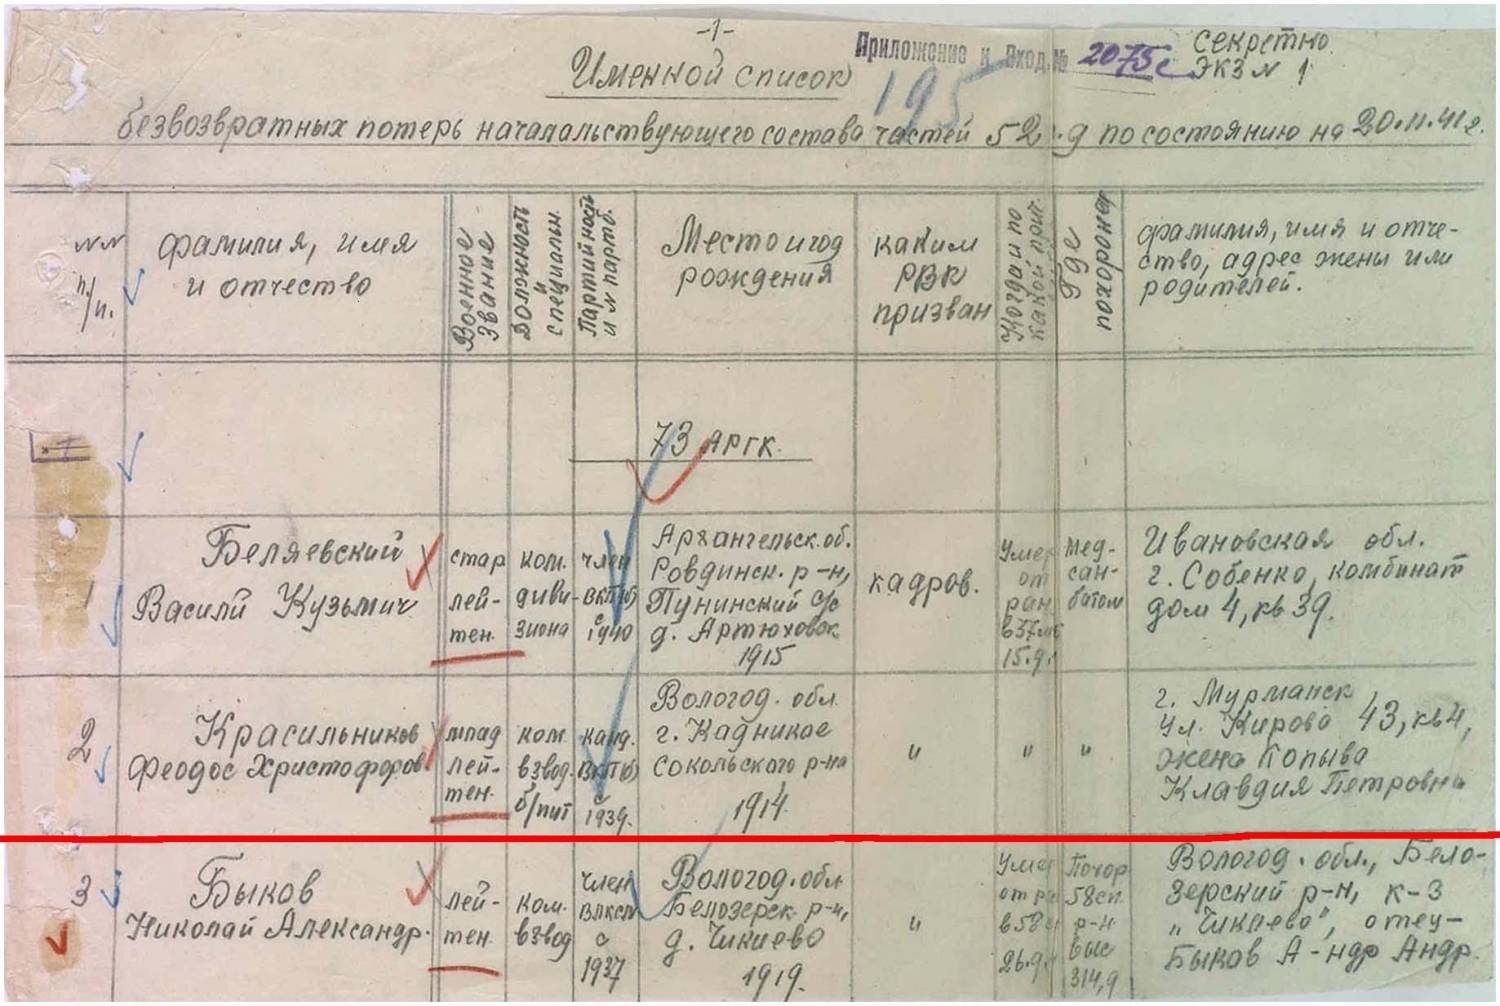 -1-
Приложение к Вход. № 2075с
Секретно
экз N 1
Именной список
195
безвозвратных потерь начальствующего состава частей 52 д по состоянию на 20.11.41г.
NN п/п.
фамилия, имя
и отчество
Военное
звание
Должность
и
специальн.
Партийность
и N партб.
Место и год
рождения
каким
РВК
призван
Когда и по
какой прич.
Где
похоронен
фамилия, имя и отче-
ство, адрес жены или
родителей.
73 АРГК.
1
Беляевский
Василий Кузьмич
стар
лей-
тен.
ком.
диви-
зиона
член
ВКП(б)
с
1940
Архангельск. обл.
Ровдинск. р-н,
Пунинский с/с
д. Артюховск
1915
кадров.
Умер
от
ран
в 37
15.9.
Мед-
сан-
батом
Ивановская обл.
г. Собенко, комбинат
дом 4, кв 39.
2
Красильников
Феодос Христофоров
млад
лей-
тен.
ком.
взвод.
б/пит
канд.
ВКП(б)
с
1939.
Вологод. обл
г. Кадникое
Сокольского р-на
1914.
"
"
"
г. Мурманск
ул. Кирова 43, кв 4,
жена Копыва
Клавдия Петровна
3
Быков
Николай Александр.
лей-
тен.
ком.
взвод
член
ВЛКСМ
с
1937
Вологод. обл
Белозерск. р-н,
д. Чикиево
1919.
"
Умер
от р
в 58
26.9.
Похор
58сп.
р-н
выс
314,9
Вологод. обл., Бело-
зерский р-н, к-з
„Чикиево", отец-
Быков А-ндр Андр.